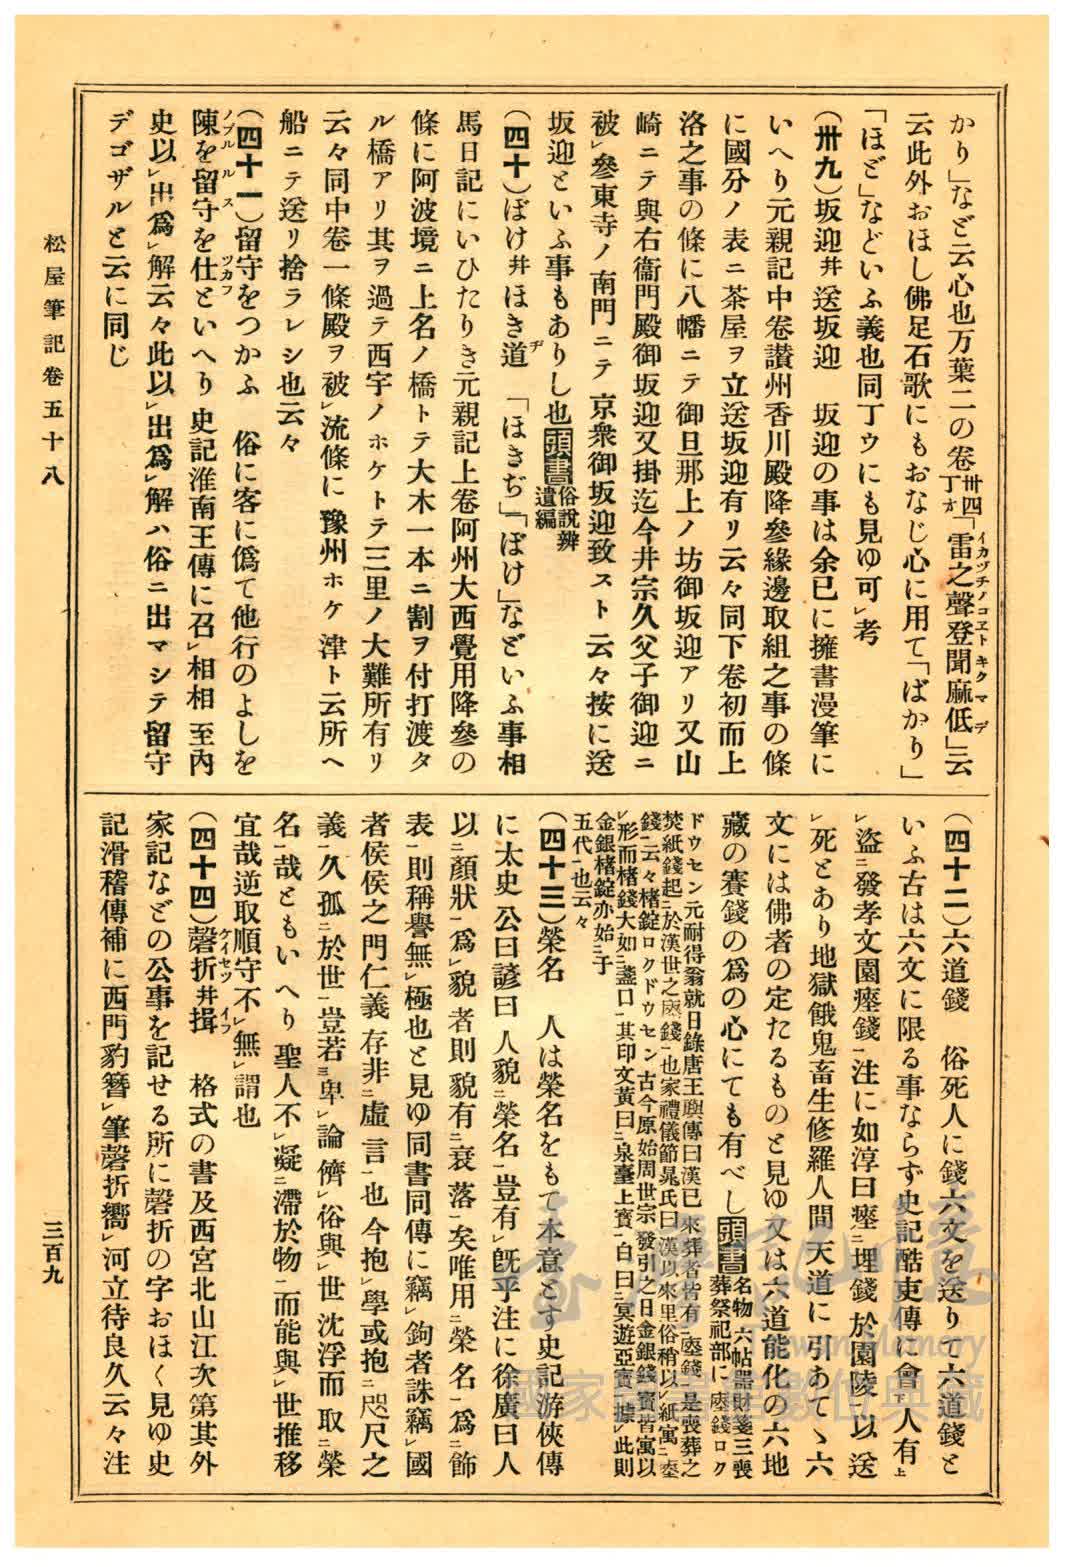 かり」など云心也万葉二の巻卅四丁オ「雷之聲登聞麻低」云
云此外おほし佛足石歌にもおなじ心に用て「ばかり」
「ほど」などいふ義也同丁ウにも見ゆ可レ考
(卅九)坂迎幷送坂迎　坂迎の事は余已に擁書漫筆に
いへり元親記中卷讃州香川殿降參緣邊取組之事の條
に國分ノ表ニ茶屋ヲ立送坂迎有リ云々同下卷初而上
洛之事の條に八幡ニテ御旦那上ノ坊御坂迎アリ又山
崎ニテ與右衞門殿御坂迎又掛迄今井宗久父子御迎ニ
被レ參東寺ノ南門ニテ京衆御坂迎致スト云々按に送
坂迎といふ事もありし也頭書俗說辨遺編
(四十)ぼけ幷ほき道　「ほきぢ」「ぼけ」などいふ事相
馬日記にいひたりき元親記上卷阿州大西覺用降參の
條に阿波境ニ上名ノ橋トテ大木一本ニ割ヲ付打渡タ
ル橋アリ其ヲ過テ西宇ノホケトテ三里ノ大難所有リ
云々同中卷一條殿ヲ被レ流條に豫州ホケ津ト云所ヘ
船ニテ送リ捨ラレシ也云々
(四十一)留守をつかふ　俗に客に僞て他行のよしを
陳を留守を仕といへり史記淮南王傳に召レ相相至內
史以レ出爲レ解云々此以レ出爲レ解ハ俗ニ出マシテ留守
デゴザルと云に同じ
(四十二)六道錢　俗死人に錢六文を送りて六道錢と
いふ古は六文に限る事ならず史記酷吏傳に會人有上
レ盜ニ發孝文園瘞錢一注に如淳曰瘞ニ埋錢於園陵一以送
レ死とあり地獄餓鬼畜生修羅人間天道に引あてゝ六
文には佛者の定たるものと見ゆ又は六道能化の六地
藏の賽錢の爲の心にても有べし頭書名物六帖器財箋三喪葬祭祀部に瘞錢ロク
ドウセン元耐得翁就日錄唐王璵傳曰漢已來葬者皆有ニ瘞錢一是喪葬之
焚紙錢起ニ於漢世之瘞錢一也家禮儀節晁氏曰漢以來里俗稍以レ紙寓ニ瘞
錢一云々楮錠ロクドウセン古今原始周世宗發引之日金銀錢寶皆寓以
レ形而楮錢大如ニ盞口一其印文黃曰ニ泉臺上寶一白曰ニ冥遊亞寶一據レ此則
金銀楮錠亦始ニ于
五代一也云々
(四十三)榮名　人は榮名をもて本意とす史記游俠傳
に太史公曰諺曰人貌ニ榮名一豈有レ旣乎注に徐廣曰人
以ニ顏狀一爲レ貌者則貌有ニ衰落一矣唯用ニ榮名一爲ニ飾
表一則稱譽無レ極也と見ゆ同書同傳に竊レ鉤者誅竊レ國
者侯侯之門仁義存非ニ虛言一也今抱レ學或抱ニ咫尺之
義一久孤ニ於世一豈若ニ卑レ論儕レ俗與レ世沈浮而取ニ榮
名一哉ともいへり聖人不レ凝ニ滯於物一而能與レ世推移
宜哉逆取順守不レ無レ謂也
(四十四)磬折幷揖　格式の書及西宮北山江次第其外
家記などの公事を記せる所に磬折の字おほく見ゆ史
記滑稽傳補に西門豹簪レ筆磬折嚮レ河立待良久云々注
松屋筆記卷五十八
三百九
臺灣記憶
Taiwan Memory
國家圖書館數位典藏